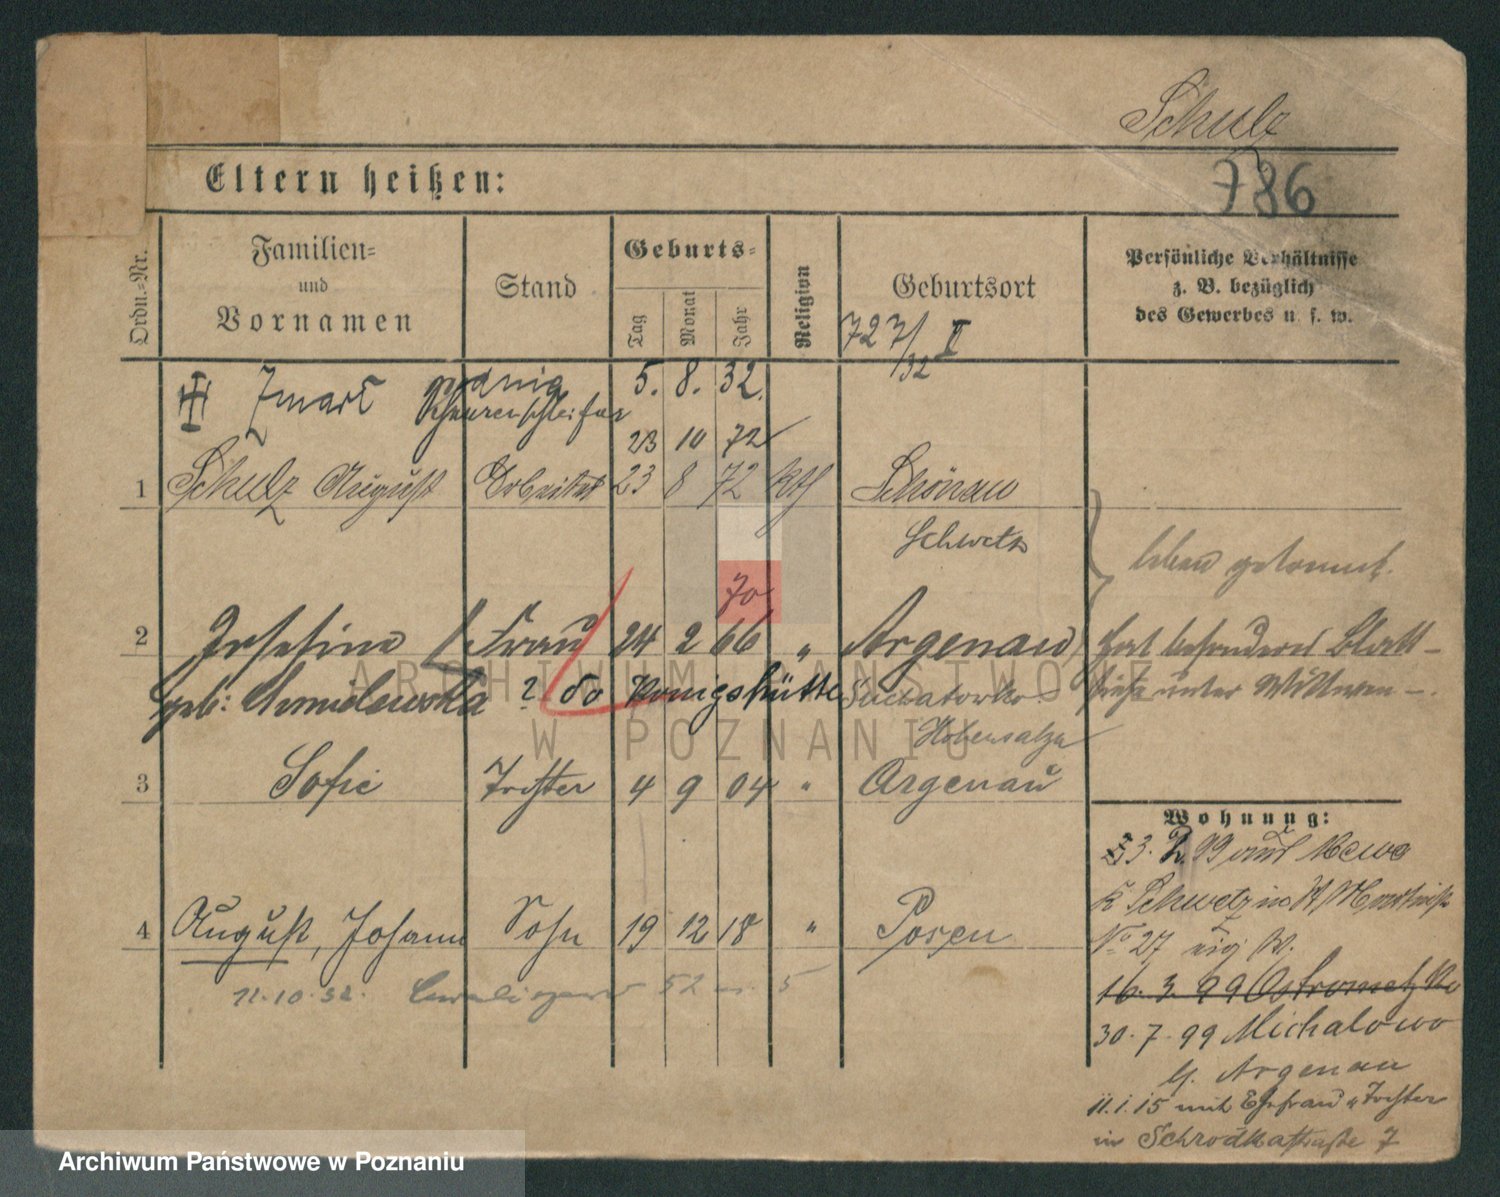 Schulz
786
Eltern heißen:
Ordn.=Nr.
Familien=
und
Vornamen
Stand
Geburts=
Tag
Monat
Jahr
Religion
Geburtsort
Persönliche Verhältnisse
z. B. bezüglich
des Gewerbes u. s. w.
727/32 II
Zmarł 5. 8. 32.
23 10 72
1 Schulz August Arbeiter 23 8 72 kth Schönau
Schwetz
leben getrennt.
70
2 Josefine Frau 24 2 66 " Argenau hat besonderes Blatt –
geb: ? do Königshütte Suchatowko siehe unter Wittwen –.
Hohensalza
3 Sofie Tochter 4 9 04 " Argenau
Wohnung:
3. 2. 99 auf Mewe
K Schwetz
No 27
4 August, Johann Sohn 19 12 18 " Posen
11.10.32. 52
16. 3. 99 Ostrometzko
30. 7. 99 Michalowo
b. Argenau
11.1.15 mit Ehefrau u Tochter
in Schrodkastraße 7
ARCHIWUM PAŃSTWOWE
W POZNANIU
Archiwum Państwowe w Poznaniu